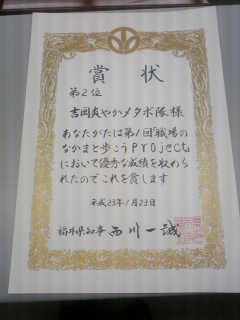 賞状
第2位
吉岡爽やかメタボ隊 様
あなたがたは第1回職場の
なかまと歩こうProject
において優秀な成績を収めら
れたのでこれを賞します
平成23年1月23日
福井県知事 西川一誠